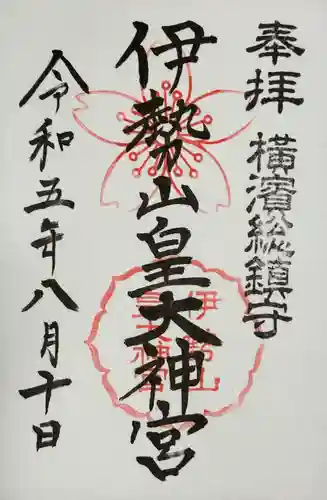 奉拝
横濱総鎮守
伊勢山皇大神宮
伊勢山
皇大神宮
令和五年八月十日